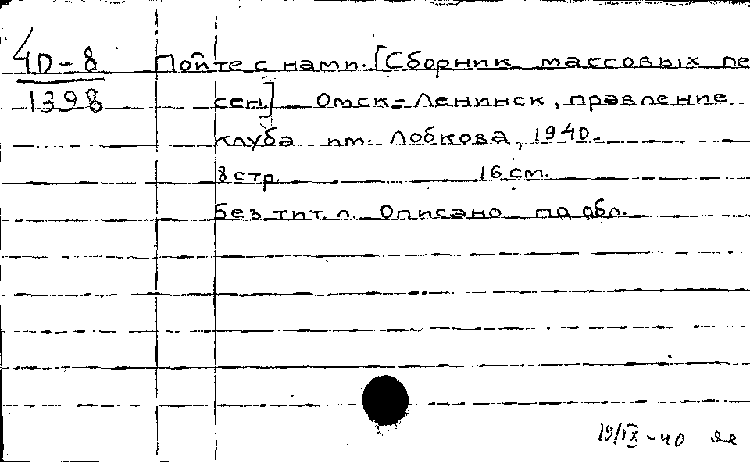 40-8
1398
Пойте с нами. [Сборник массовых пе
сен.] Омск-Ленинск, правление
клуба им. Лобкова, 1940.
8 стр. 16 см.
Без тит. л. Описано по обл.
19/IX-40